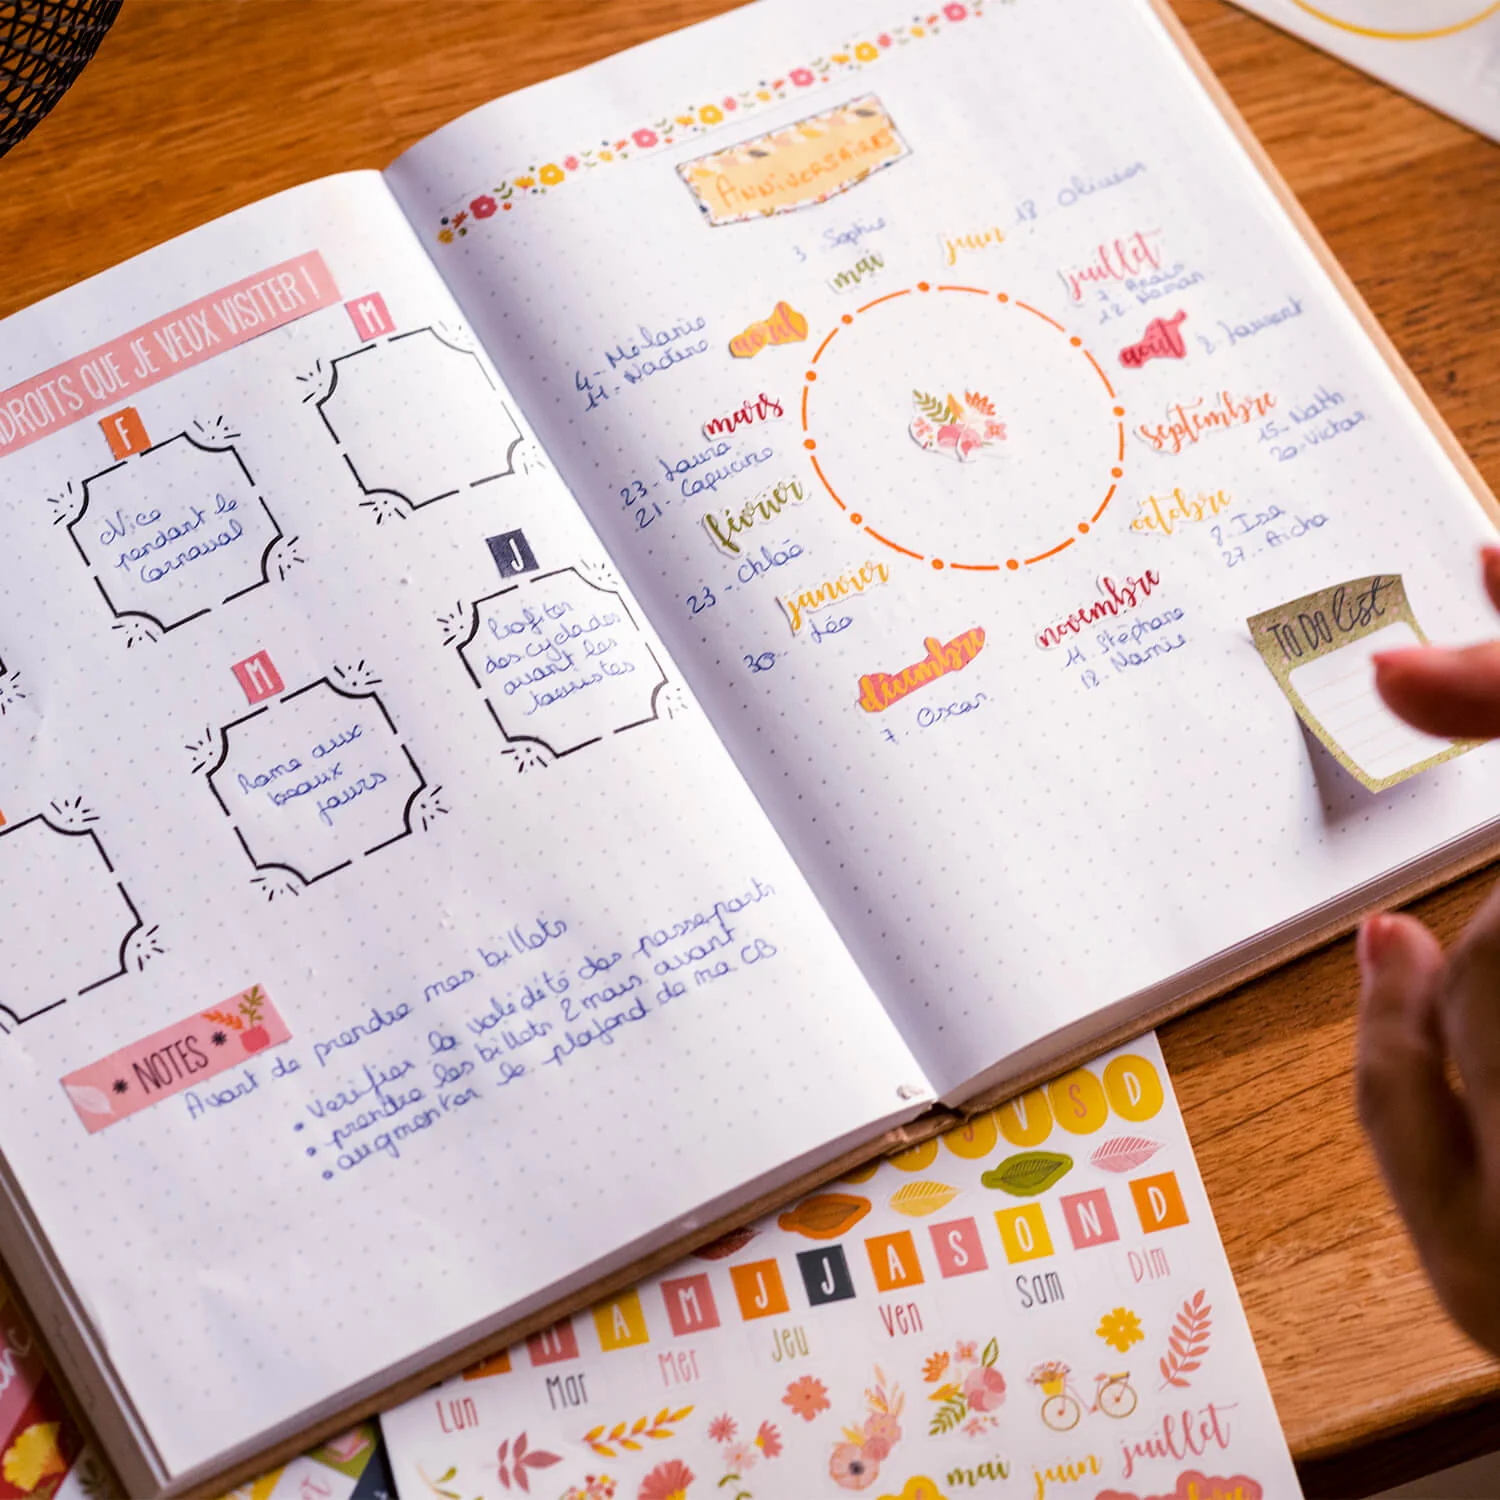 DROITS QUE JE VEUX VISITER !
M
F
Nice
pendant le
Carnaval
J
Profiter
des cyclades
avant les
touristes
M
Rome aux
beaux
jours
* NOTES *
Avant de prendre mes billets
• Verifier la validité des passeports
• prendre les billets 2 mois avant
• augmenter le plafond de ma CB
ANNIVERSAIRES
3. Sophie
mai
juin
18. Olivier
juillet
7. Anaïs
12. Naman
août
8. Laurent
septembre
15. Nath
20. Victor
octobre
8. Isa
27. Aicha
novembre
11 Stéphane
18. Mamie
décembre
7. Oscar
janvier
30- Léo
février
23 - Chloé
mars
23 - Laura
21 - Capucine
avril
4 - Mélanie
11 - Nadine
TO DO list
V S D
M A M J J A S O N D
Lun Mar Mer Jeu Ven Sam Dim
mai juin juillet